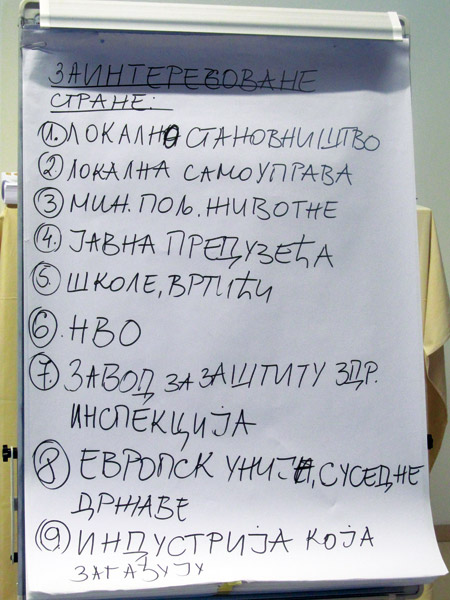 ЗАИНТЕРЕСОВАНЕ
СТРАНЕ:
1. ЛОКАЛНО СТАНОВНИШТВО
2 ЛОКАЛНА САМОУПРАВА
3 МИН. ПОЉ. ЖИВОТНЕ
4. ЈАВНА ПРЕДУЗЕЋА
5. ШКОЛЕ, ВРТИЋИ
6. НВО
7. ЗАВОД ЗА ЗАШТИТУ ЗДР.
ИНСПЕКЦИЈА
8 ЕВРОПСК УНИЈЕ, СУСЕДНЕ
ДРЖАВЕ
9 ИНДУСТРИЈА КОЈА
ЗАГАЂУЈУ